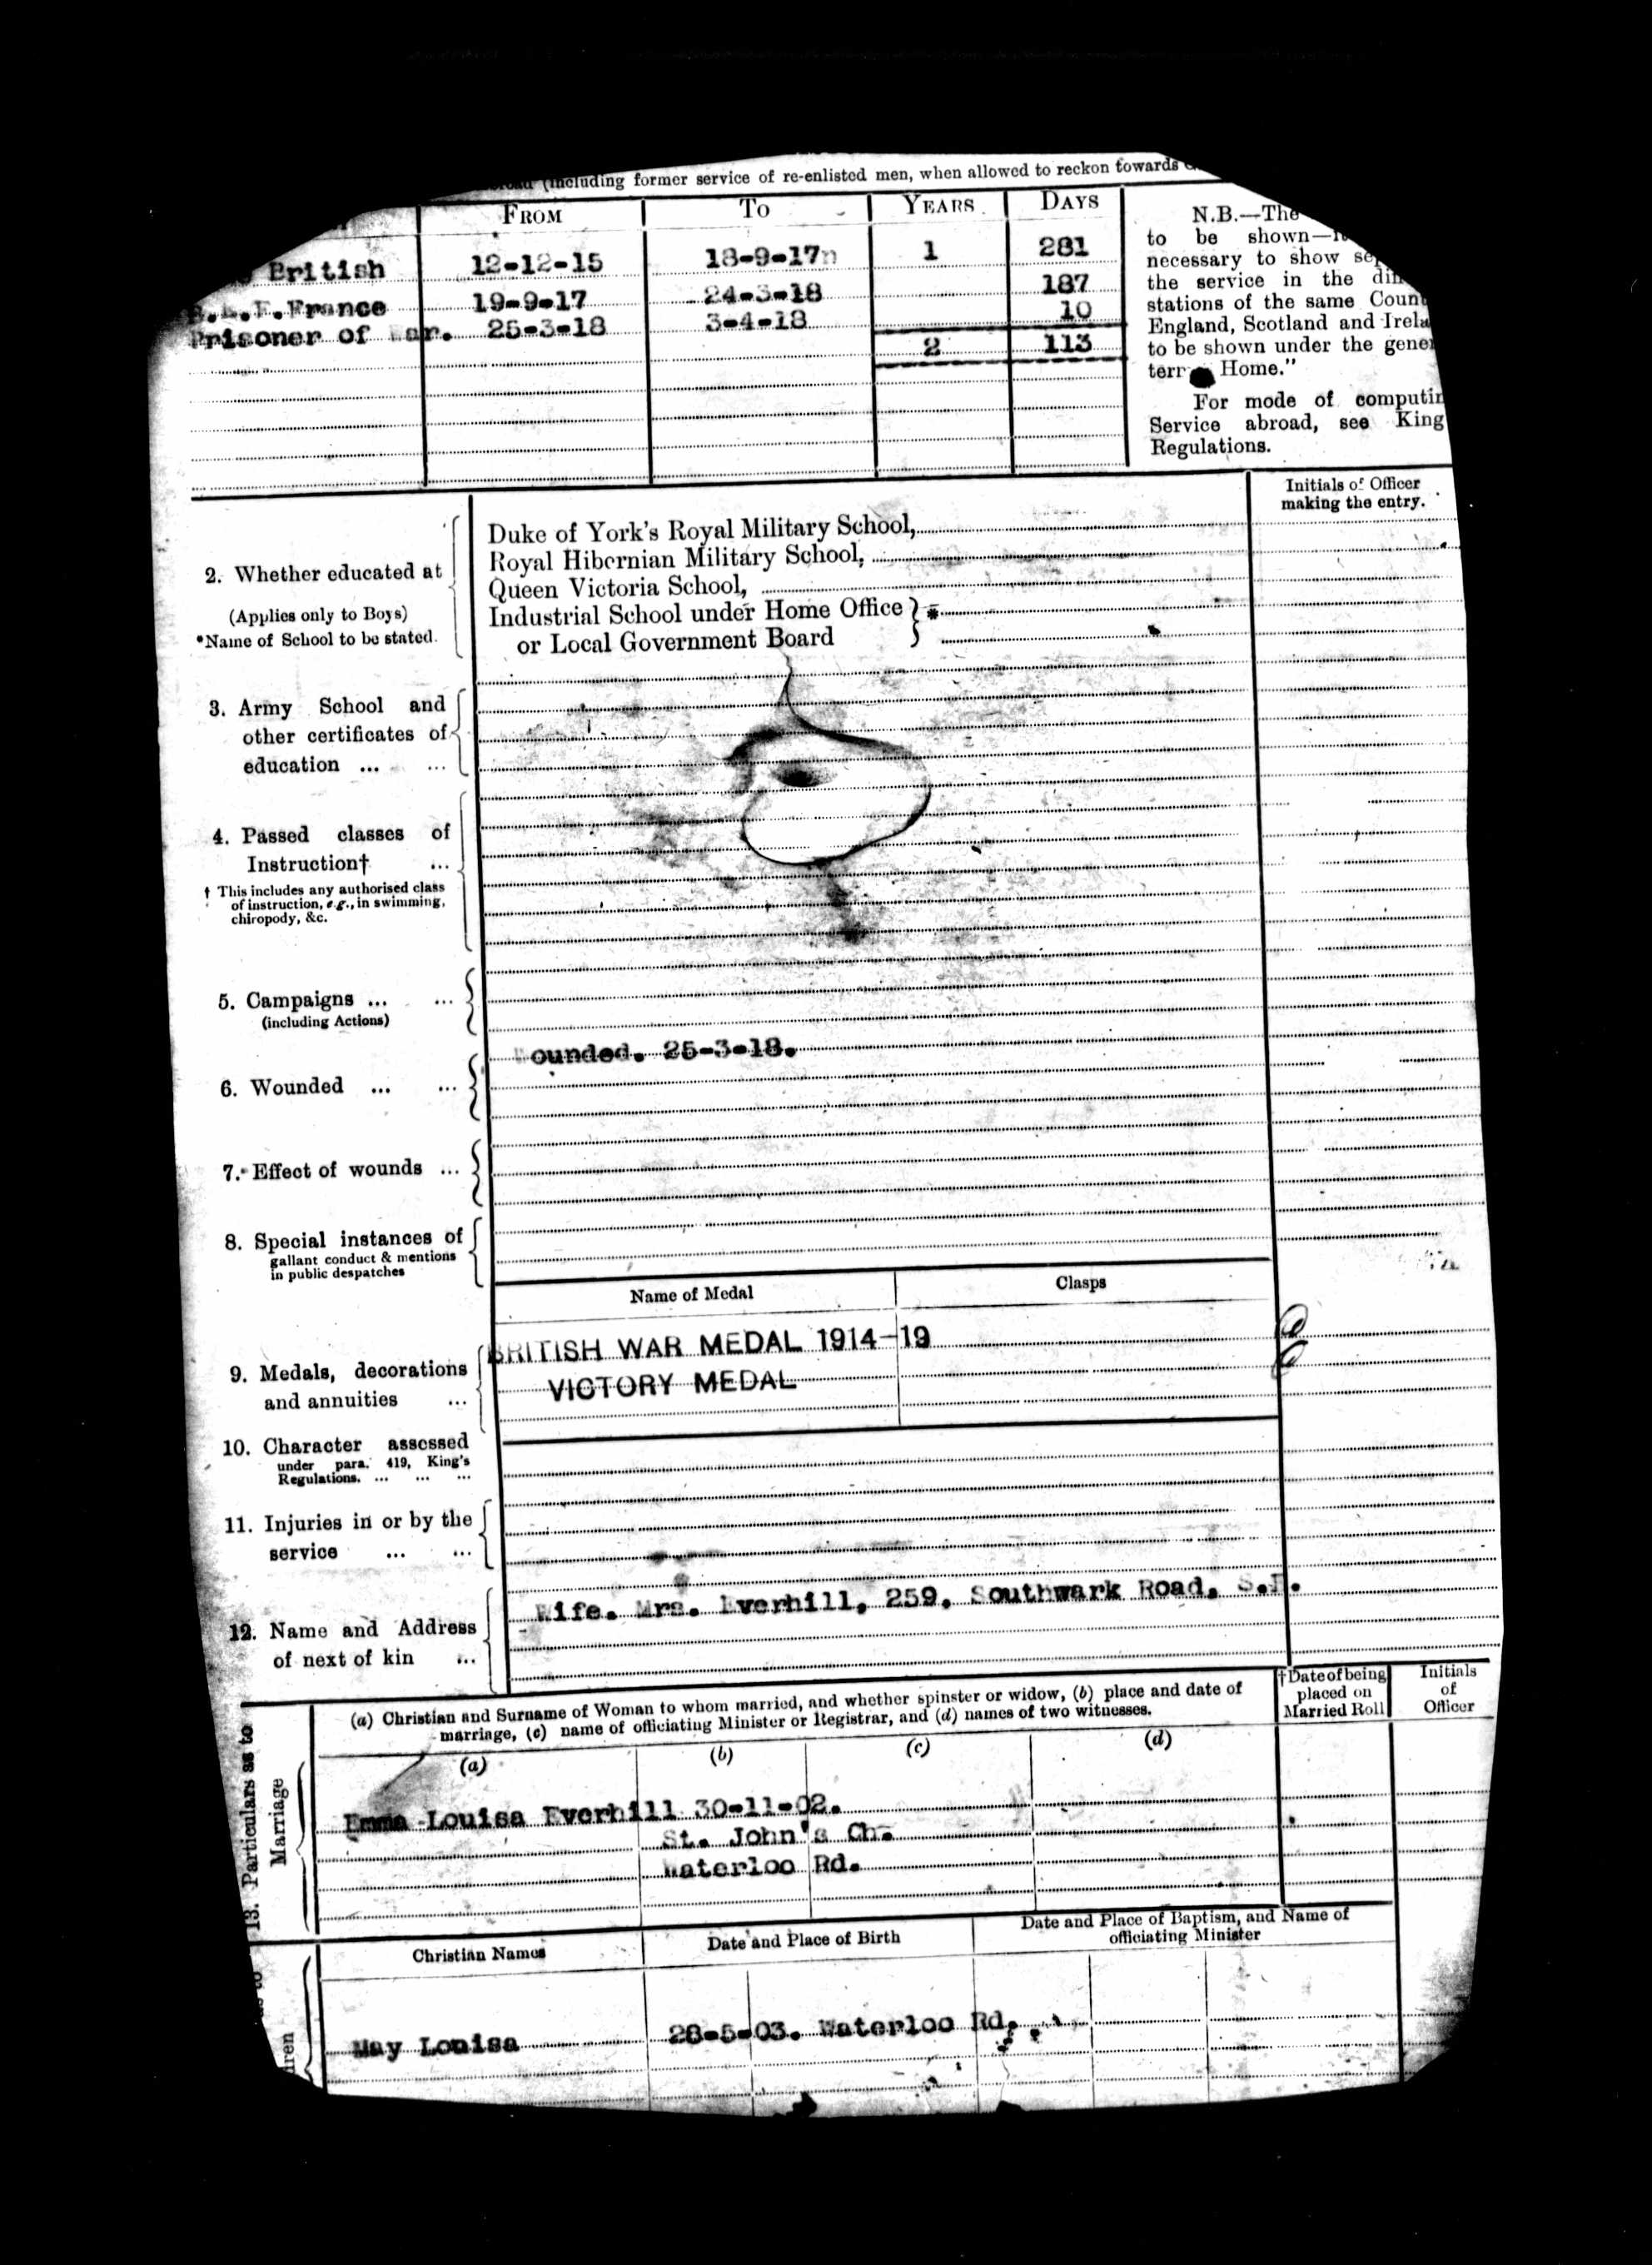 (including former service of re-enlisted men, when allowed to reckon towards
FROM TO YEARS DAYS
British 12-12-15 18-9-17 1 281
France 19-9-17 24-3-18 187
Prisoner of War. 25-3-18 3-4-18 10
2 113
N.B.—The
to be shown—
necessary to show
the service in the
stations of the same
England, Scotland and
to be shown under the
Home."
For mode of
Service abroad, see King
Regulations.
Initials of Officer
making the entry.
2. Whether educated at
(Applies only to Boys)
*Name of School to be stated.
Duke of York's Royal Military School,
Royal Hibernian Military School,
Queen Victoria School,
Industrial School under Home Office } *
or Local Government Board
3. Army School and
other certificates of
education ... ...
4. Passed classes of
Instruction† ...
† This includes any authorised class
of instruction, e.g., in swimming,
chiropody, &c.
5. Campaigns ... ...
(including Actions)
6. Wounded ... ...
Wounded. 25-3-18.
7. Effect of wounds ...
8. Special instances of
gallant conduct & mentions
in public despatches
Name of Medal Clasps
9. Medals, decorations
and annuities ...
BRITISH WAR MEDAL 1914-19
VICTORY MEDAL
10. Character assessed
under para. 419, King's
Regulations. ... ... ...
11. Injuries in or by the
service ... ...
12. Name and Address
of next of kin ...
Wife. Mrs. Everhill, 259, Southwark Road, S.E.
13. Particulars as to
Marriage
(a) Christian and Surname of Woman to whom married, and whether spinster or widow, (b) place and date of
marriage, (c) name of officiating Minister or Registrar, and (d) names of two witnesses.
†Date of being
placed on
Married Roll
Initials
of
Officer
(a) (b) (c) (d)
Emma Louisa Everhill 30-11-02.
St. John's Ch.
Waterloo Rd.
Christian Names
Date and Place of Birth
Date and Place of Baptism, and Name of
officiating Minister
May Louisa 28-5-03. Waterloo Rd.